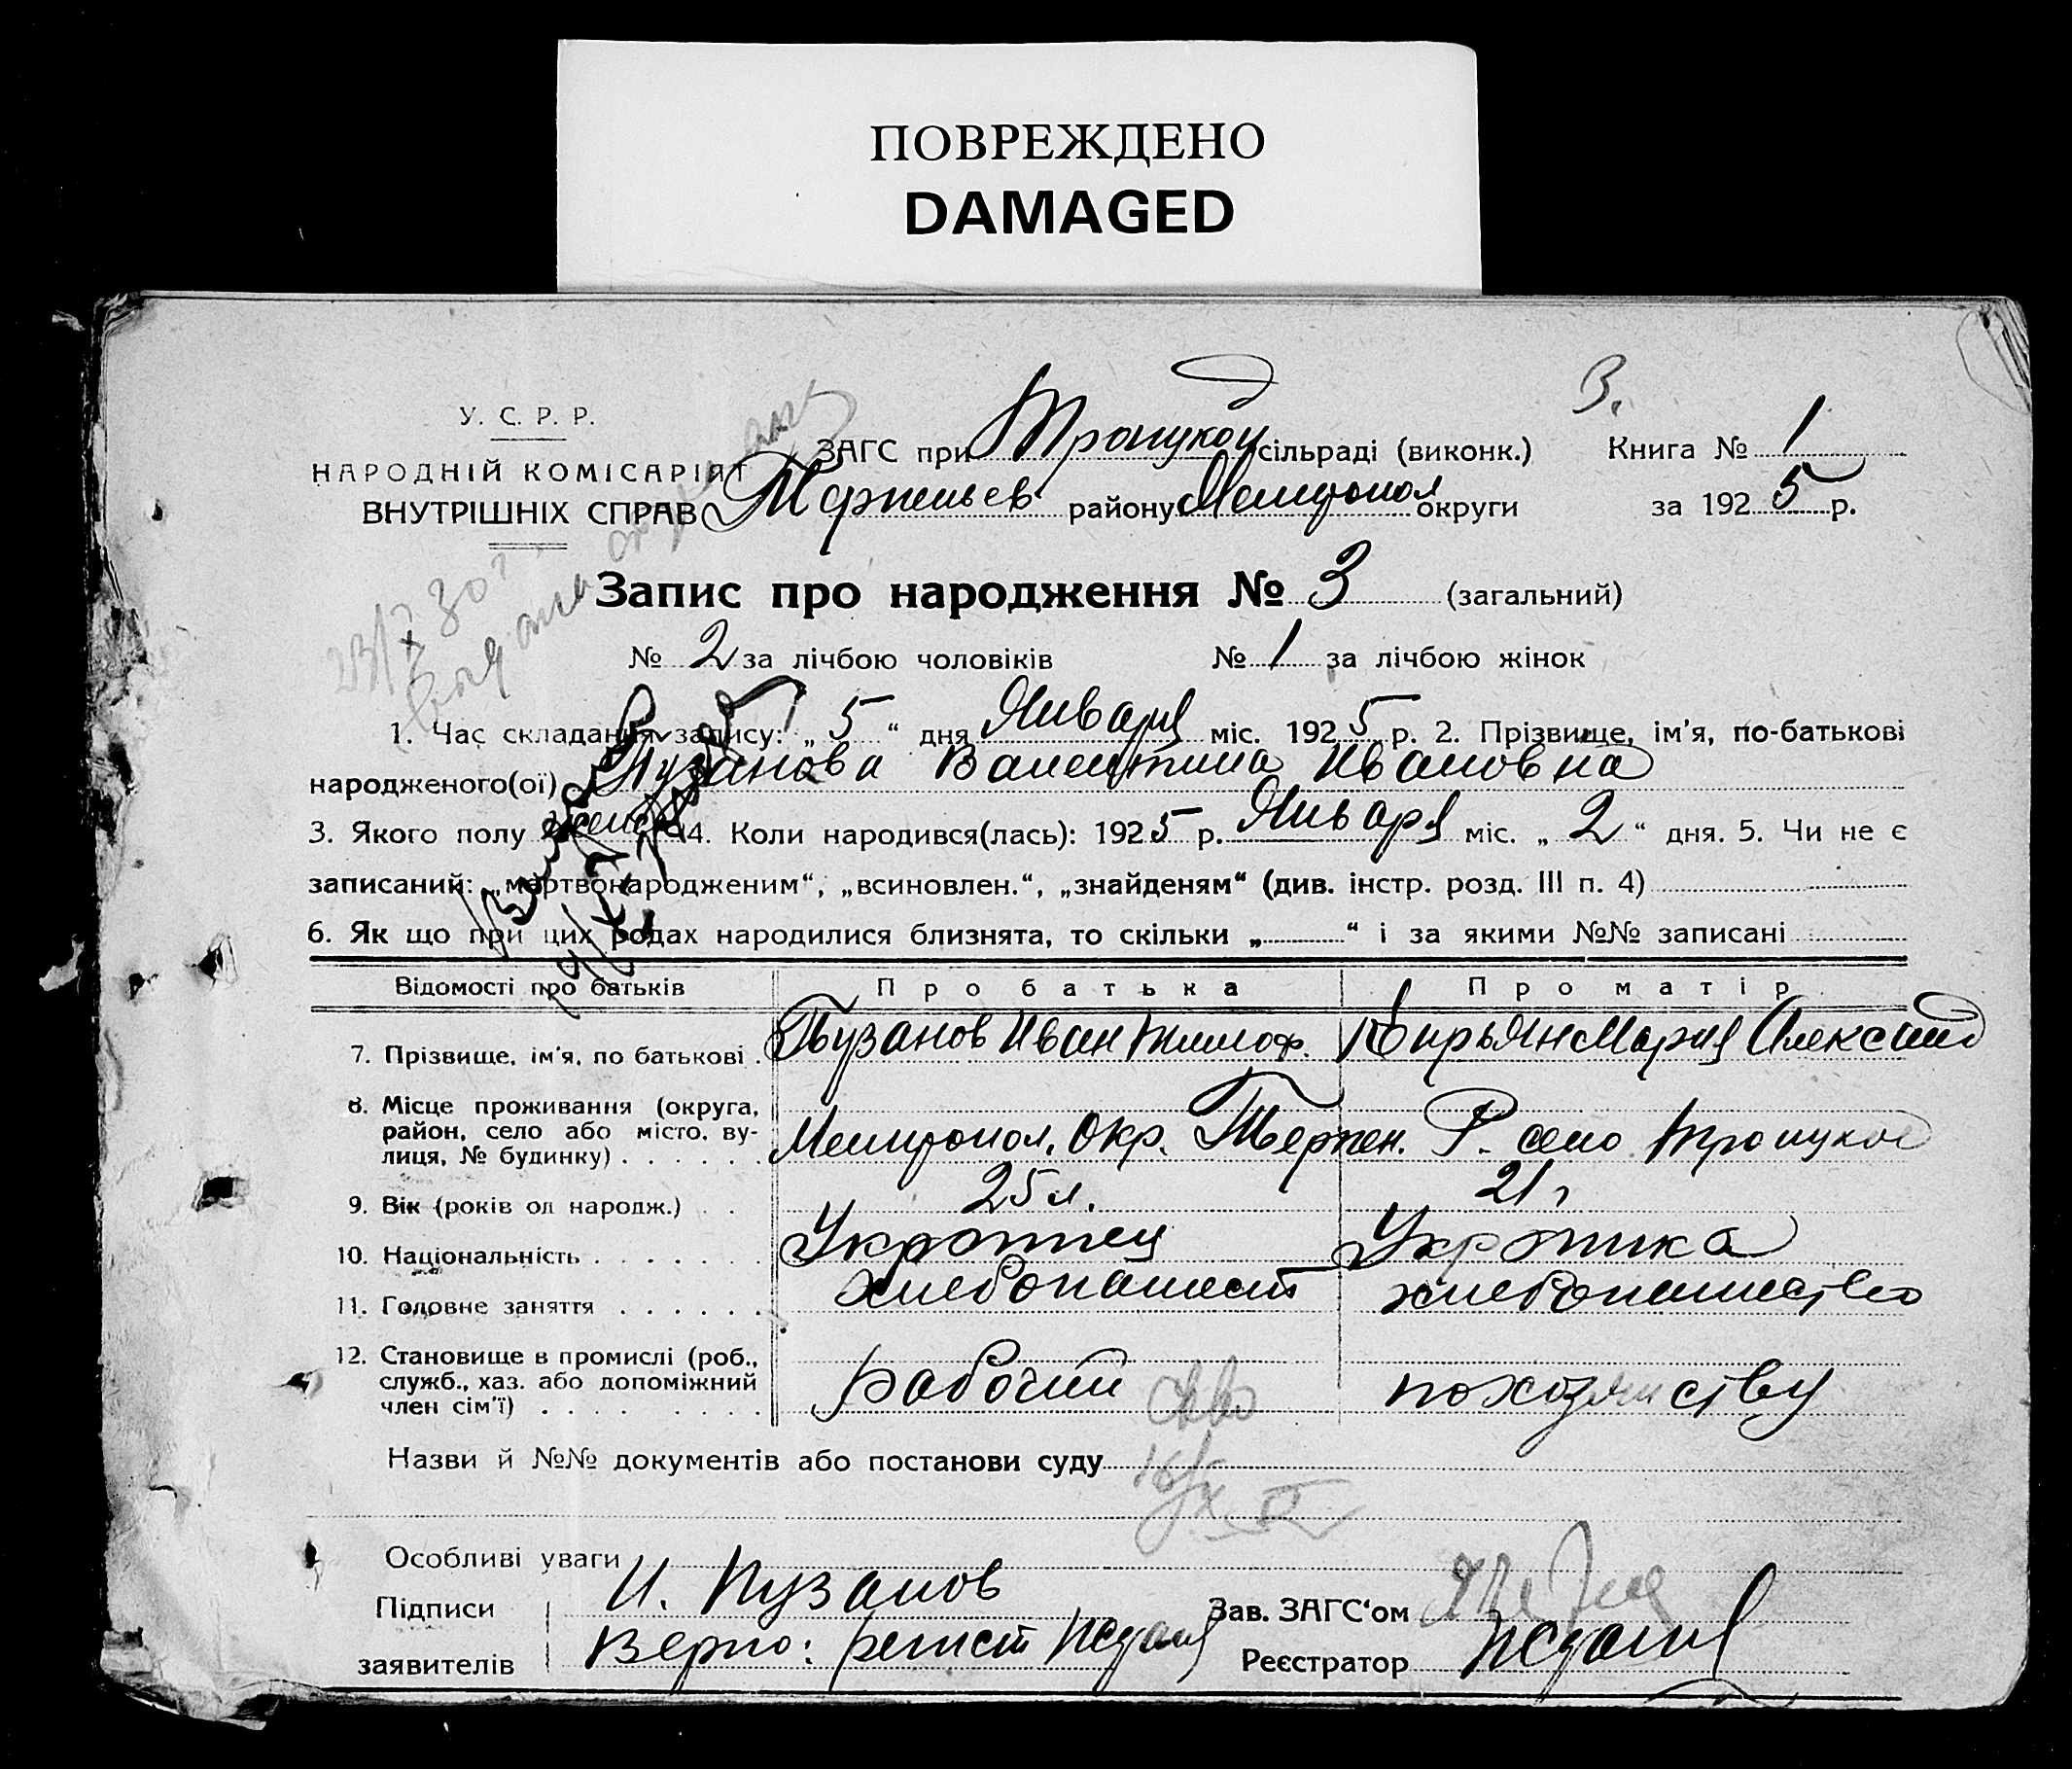 ПОВРЕЖДЕНО
DAMAGED
З.
У. С. Р. Р.
НАРОДНІЙ КОМІСАРІЯТ
ВНУТРІШНІХ СПРАВ
ЗАГС при Троицком сільраді (виконк.) Книга № 1
Терпеньев району Мелитопол округи за 1925 р.
Запис про народження № 3 (загальний)
№ 2 за лічбою чоловіків № 1 за лічбою жінок
1. Час складання запису: „5“ дня Января міс. 1925 р. 2. Прізвище, ім'я, по-батькові
народженого(ої) Пузанова Валентина Ивановна
3. Якого полу женск 4. Коли народився(лась): 1925 р. Января міс. „2“ дня. 5. Чи не є
записаний: „мертвонародженим“, „всиновлен.“, „знайденям“ (див. інстр. розд. III п. 4)
6. Як що при цих родах народилися близнята, то скільки „ “ і за якими №№ записані
Відомості про батьків Про батька Про матір
7. Прізвище, ім'я, по батькові Пузанов Иван Тимоф. Кирьян Мария Александ
8. Місце проживання (округа,
район, село або місто, ву-
лиця, № будинку) Мелитопол. Окр. Терпен. Р. село Троицкое
9. Вік (років од народж.) 25 л. 21 г
10. Національність Укр
11. Головне заняття хлебопашест хлебопашество
12. Становище в промислі (роб.,
служб., хаз. або допоміжний
член сім'ї) рабочий по хозяйству
Назви й №№ документів або постанови суду
Особливі уваги
Підписи И. Пузанов Зав. ЗАГС'ом
заявителів Верно: Регист Реєстратор